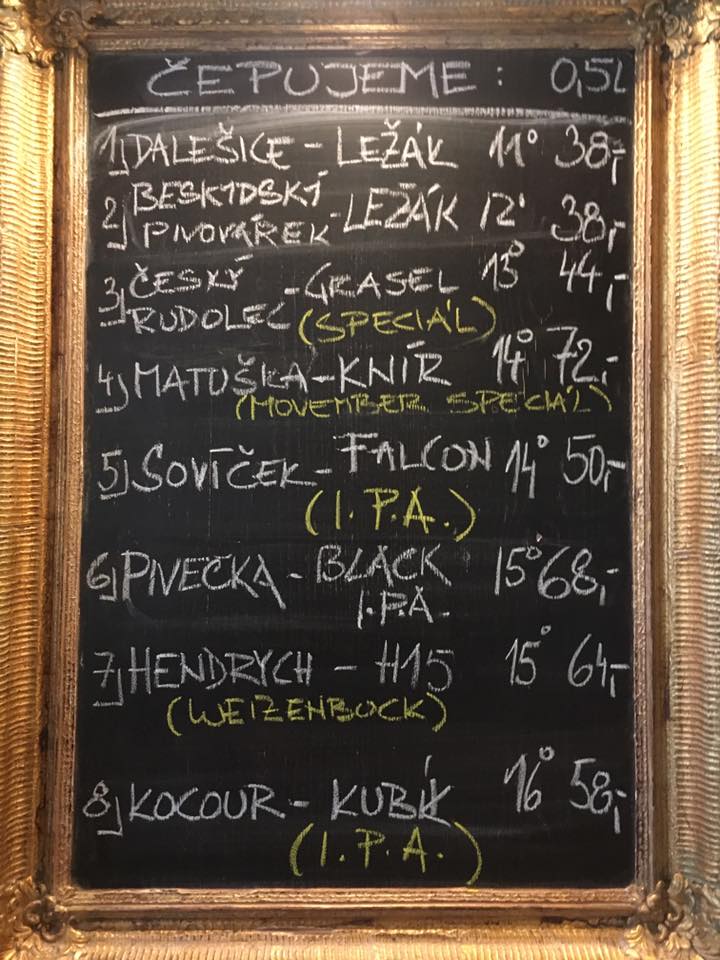 ČEPUJEME: 0,5L
1) DALEŠICE - LEŽÁK 11° 38,-
2) BESKYDSKÝ
PIVOVÁREK - LEŽÁK 12° 38,-
3) ČESKÝ - GRASEL 13° 44,-
RUDOLEC (SPECIÁL)
4) MATUŠKA - KNÍR 14° 72,-
(MOVEMBER SPECIÁL)
5) SOVÍČEK - FALCON 14° 50,-
(I.P.A.)
6) PIVEČKA - BLACK 15° 68,-
I.P.A.
7) HENDRYCH - H15 15° 64,-
(WEIZENBOCK)
8) KOCOUR - KUBÍK 16° 58,-
(I.P.A.)